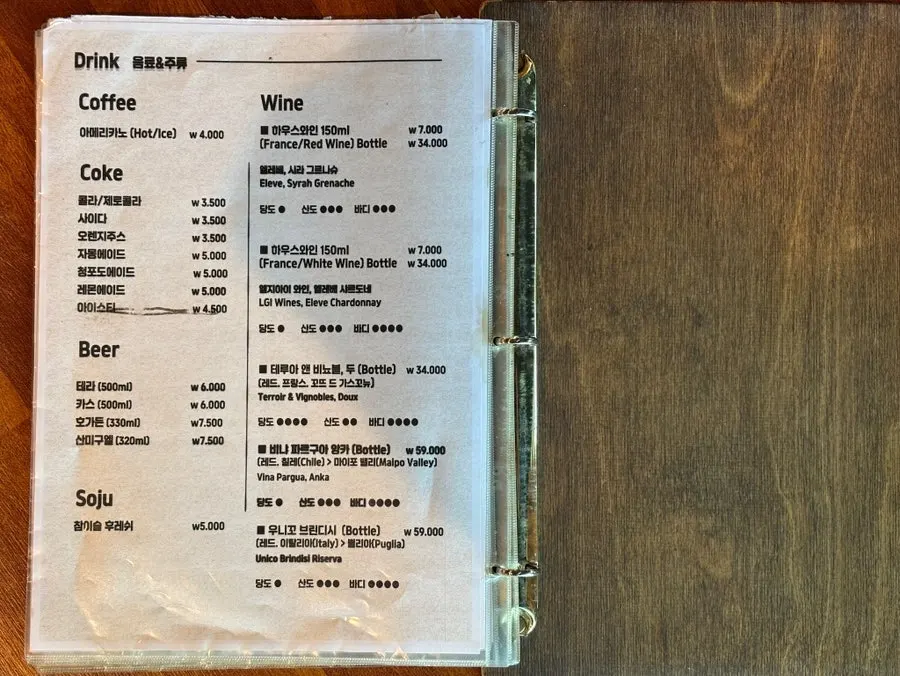 Drink 음료&주류
Coffee
아메리카노 (Hot/Ice) ₩ 4.000
Coke
콜라/제로콜라 ₩ 3.500
사이다 ₩ 3.500
오렌지주스 ₩ 3.500
자몽에이드 ₩ 5.000
청포도에이드 ₩ 5.000
레몬에이드 ₩ 5.000
아이스티 ₩ 4.500
Beer
테라 (500ml) ₩ 6.000
카스 (500ml) ₩ 6.000
호가든 (330ml) ₩7.500
산미구엘 (320ml) ₩7.500
Soju
참이슬 후레쉬 ₩5.000
Wine
■ 하우스와인 150ml ₩ 7.000
(France/Red Wine) Bottle ₩ 34.000
엘레베, 시라 그르나슈
Eleve, Syrah Grenache
당도 ● 산도 ●●● 바디 ●●●
■ 하우스와인 150ml ₩ 7.000
(France/White Wine) Bottle ₩ 34.000
엘지아이 와인, 엘레베 샤르도네
LGI Wines, Eleve Chardonnay
당도 ● 산도 ●●● 바디 ●●●●
■ 테루아 앤 비뇨블, 두 (Bottle) ₩ 34.000
(레드. 프랑스. 꼬뜨 드 가스꼬뉴)
Terroir & Vignobles, Doux
당도 ●●●● 산도 ●● 바디 ●●●●
■ 비냐 파르구아 앙카 (Bottle) ₩ 59.000
(레드. 칠레(Chile) > 마이포 밸리(Maipo Valley)
Vina Pargua, Anka
당도 ● 산도 ●●● 바디 ●●●●
■ 우니꼬 브린디시 (Bottle) ₩ 59.000
(레드. 이탈리아(Italy) > 뿔리아(Puglia)
Unico Brindisi Riserva
당도 ● 산도 ●●● 바디 ●●●●